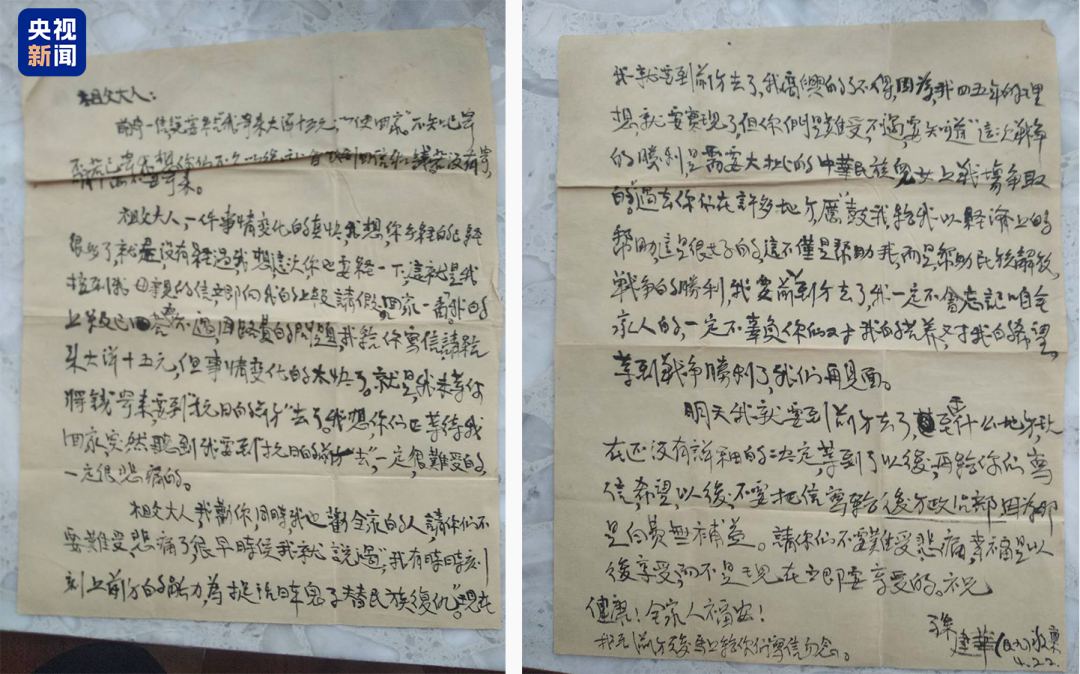 央视
新闻
祖父大人：
前寄一信说要早给我寄来大洋十五元，“以便回家”不知已寄
否若已寄
寄来。
祖父大人，一件事情变化的真快，我想，你经的已经
很多了就是没有经过我想这次你也要经一下，这就是我
接到我母亲的信立即向我的上级請假，回家一番，我的
上级已因答应不过，因路费的问题，我给你写信請给
来大洋十五元，但事情变化的太快了。就是，我未等你
將钱寄来要到“抗日的前方”去了。我想，你们正等待我
回家，突然聽到我要到“抗日的前方去”，一定很難受的，
一定很悲痛的。
祖父大人，我勸你，同時我也勸全家的人，請你们不
要難受悲痛了，很早時侯我就說過“我有時時刻
刻上前方的
努力，為捉活日本鬼子替民族復仇。”現在
我就要到前方去了，我高興的了不得，因為，我四五年的理
想，就要實現了，但你們是難受，不過要知道“這次战争
的勝利，是需要大批的中華民族兒女上戰場争取
的。”過去你们在許多地方鼓我，給我以經濟上的
帮助，這是很大了的，這不僅是帮助我，而是帮助民族解放
戰争的勝利，我要到前方去了，我一定不會忘記咱全
家人的，一定不辜负你们对于我的培养，对我的希望，
等到戰争勝利了，我们再見面。
明天我就要到前方去了，至于什么地方，現
在还没有詳細的决定，等到了以後，再給你们寫
信，希望，以後，不要把信寫給後方政治部，因為那
是白費無補益。請你们不要難受悲痛，幸福是以
後享受，而不是現在立即要享受的。祝
健康！全家人福安！
我
到前方後，馬上給你们寫信勿念。
孫
建華
4.22